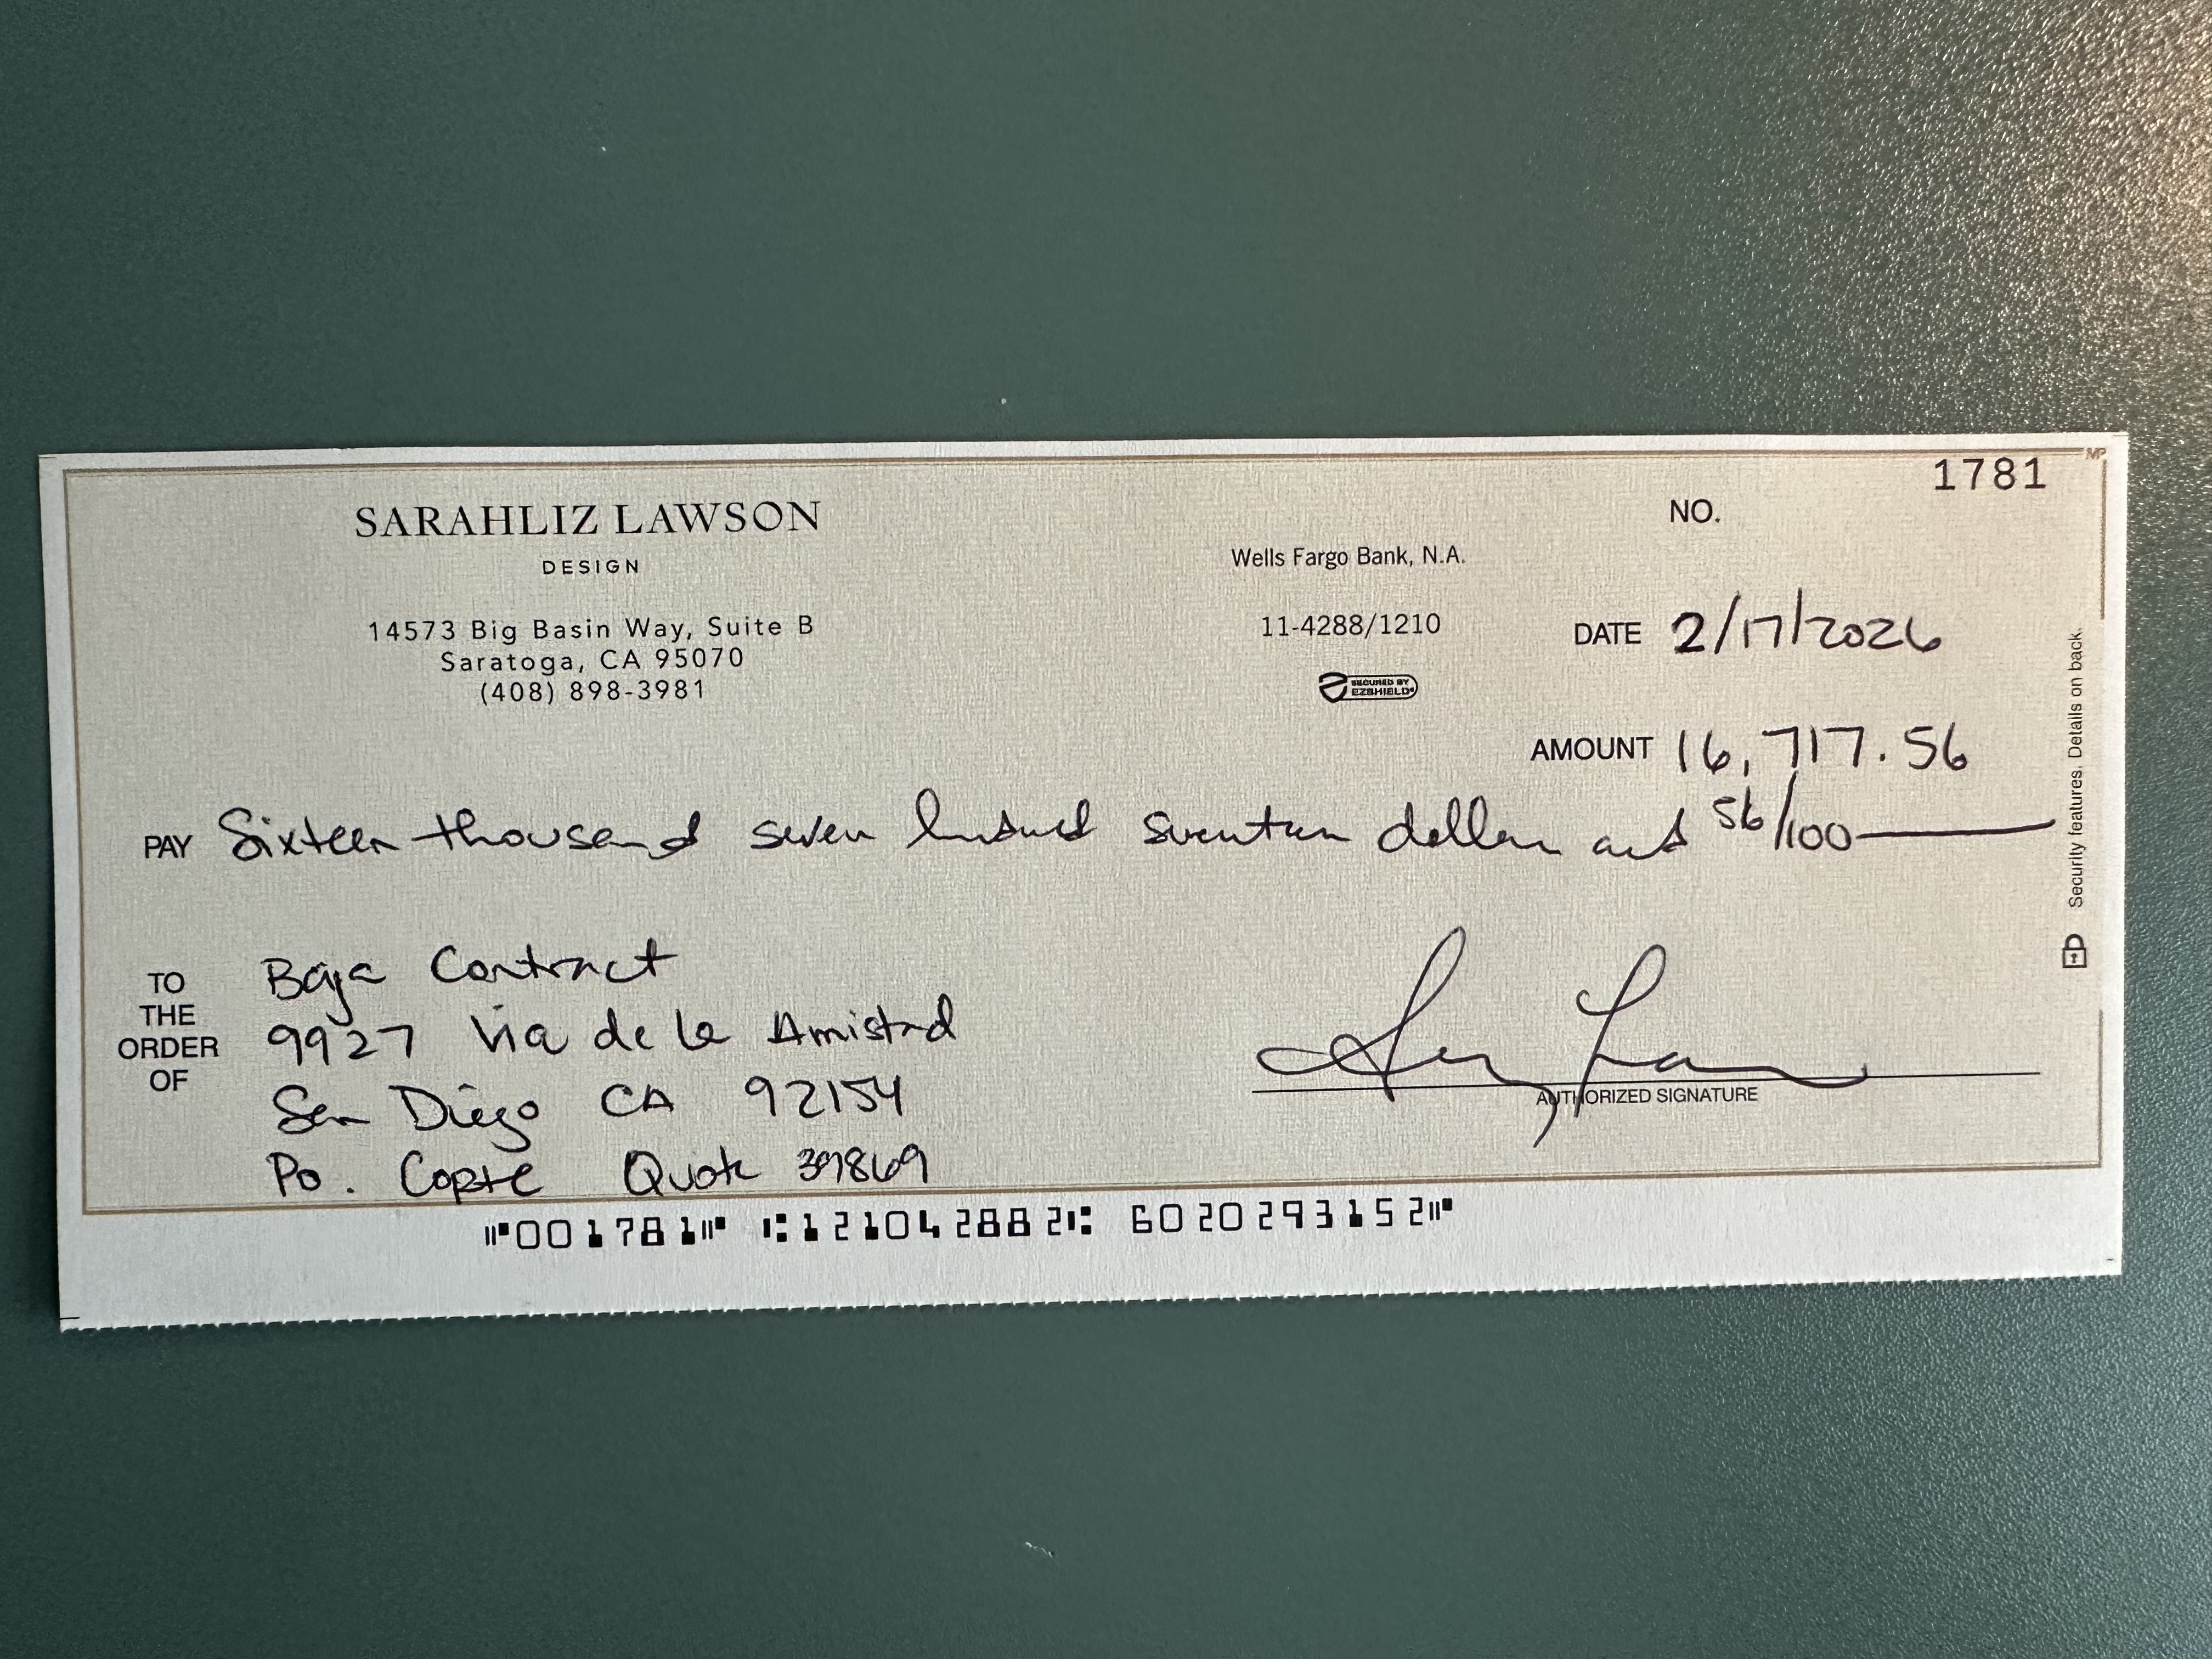 1781
SARAHLIZ LAWSON
NO.
DESIGN
Wells Fargo Bank, N.A.
14573 Big Basin Way, Suite B
11-4288/1210
DATE 2/17/2026
Saratoga, CA 95070
(408) 898-3981
SECURED BY
EZSHIELD
AMOUNT 16,717.56
PAY Sixteen thousand seven hundred seventeen dollars and 56/100
TO
THE
ORDER
OF
Baja Contract
9927 Via de la Amistad
San Diego CA 92154
PO. Quote 39869
AUTHORIZED SIGNATURE
Security features. Details on back.
MP
⑈001781⑈ ⑆121042882⑆ 6020293152⑈